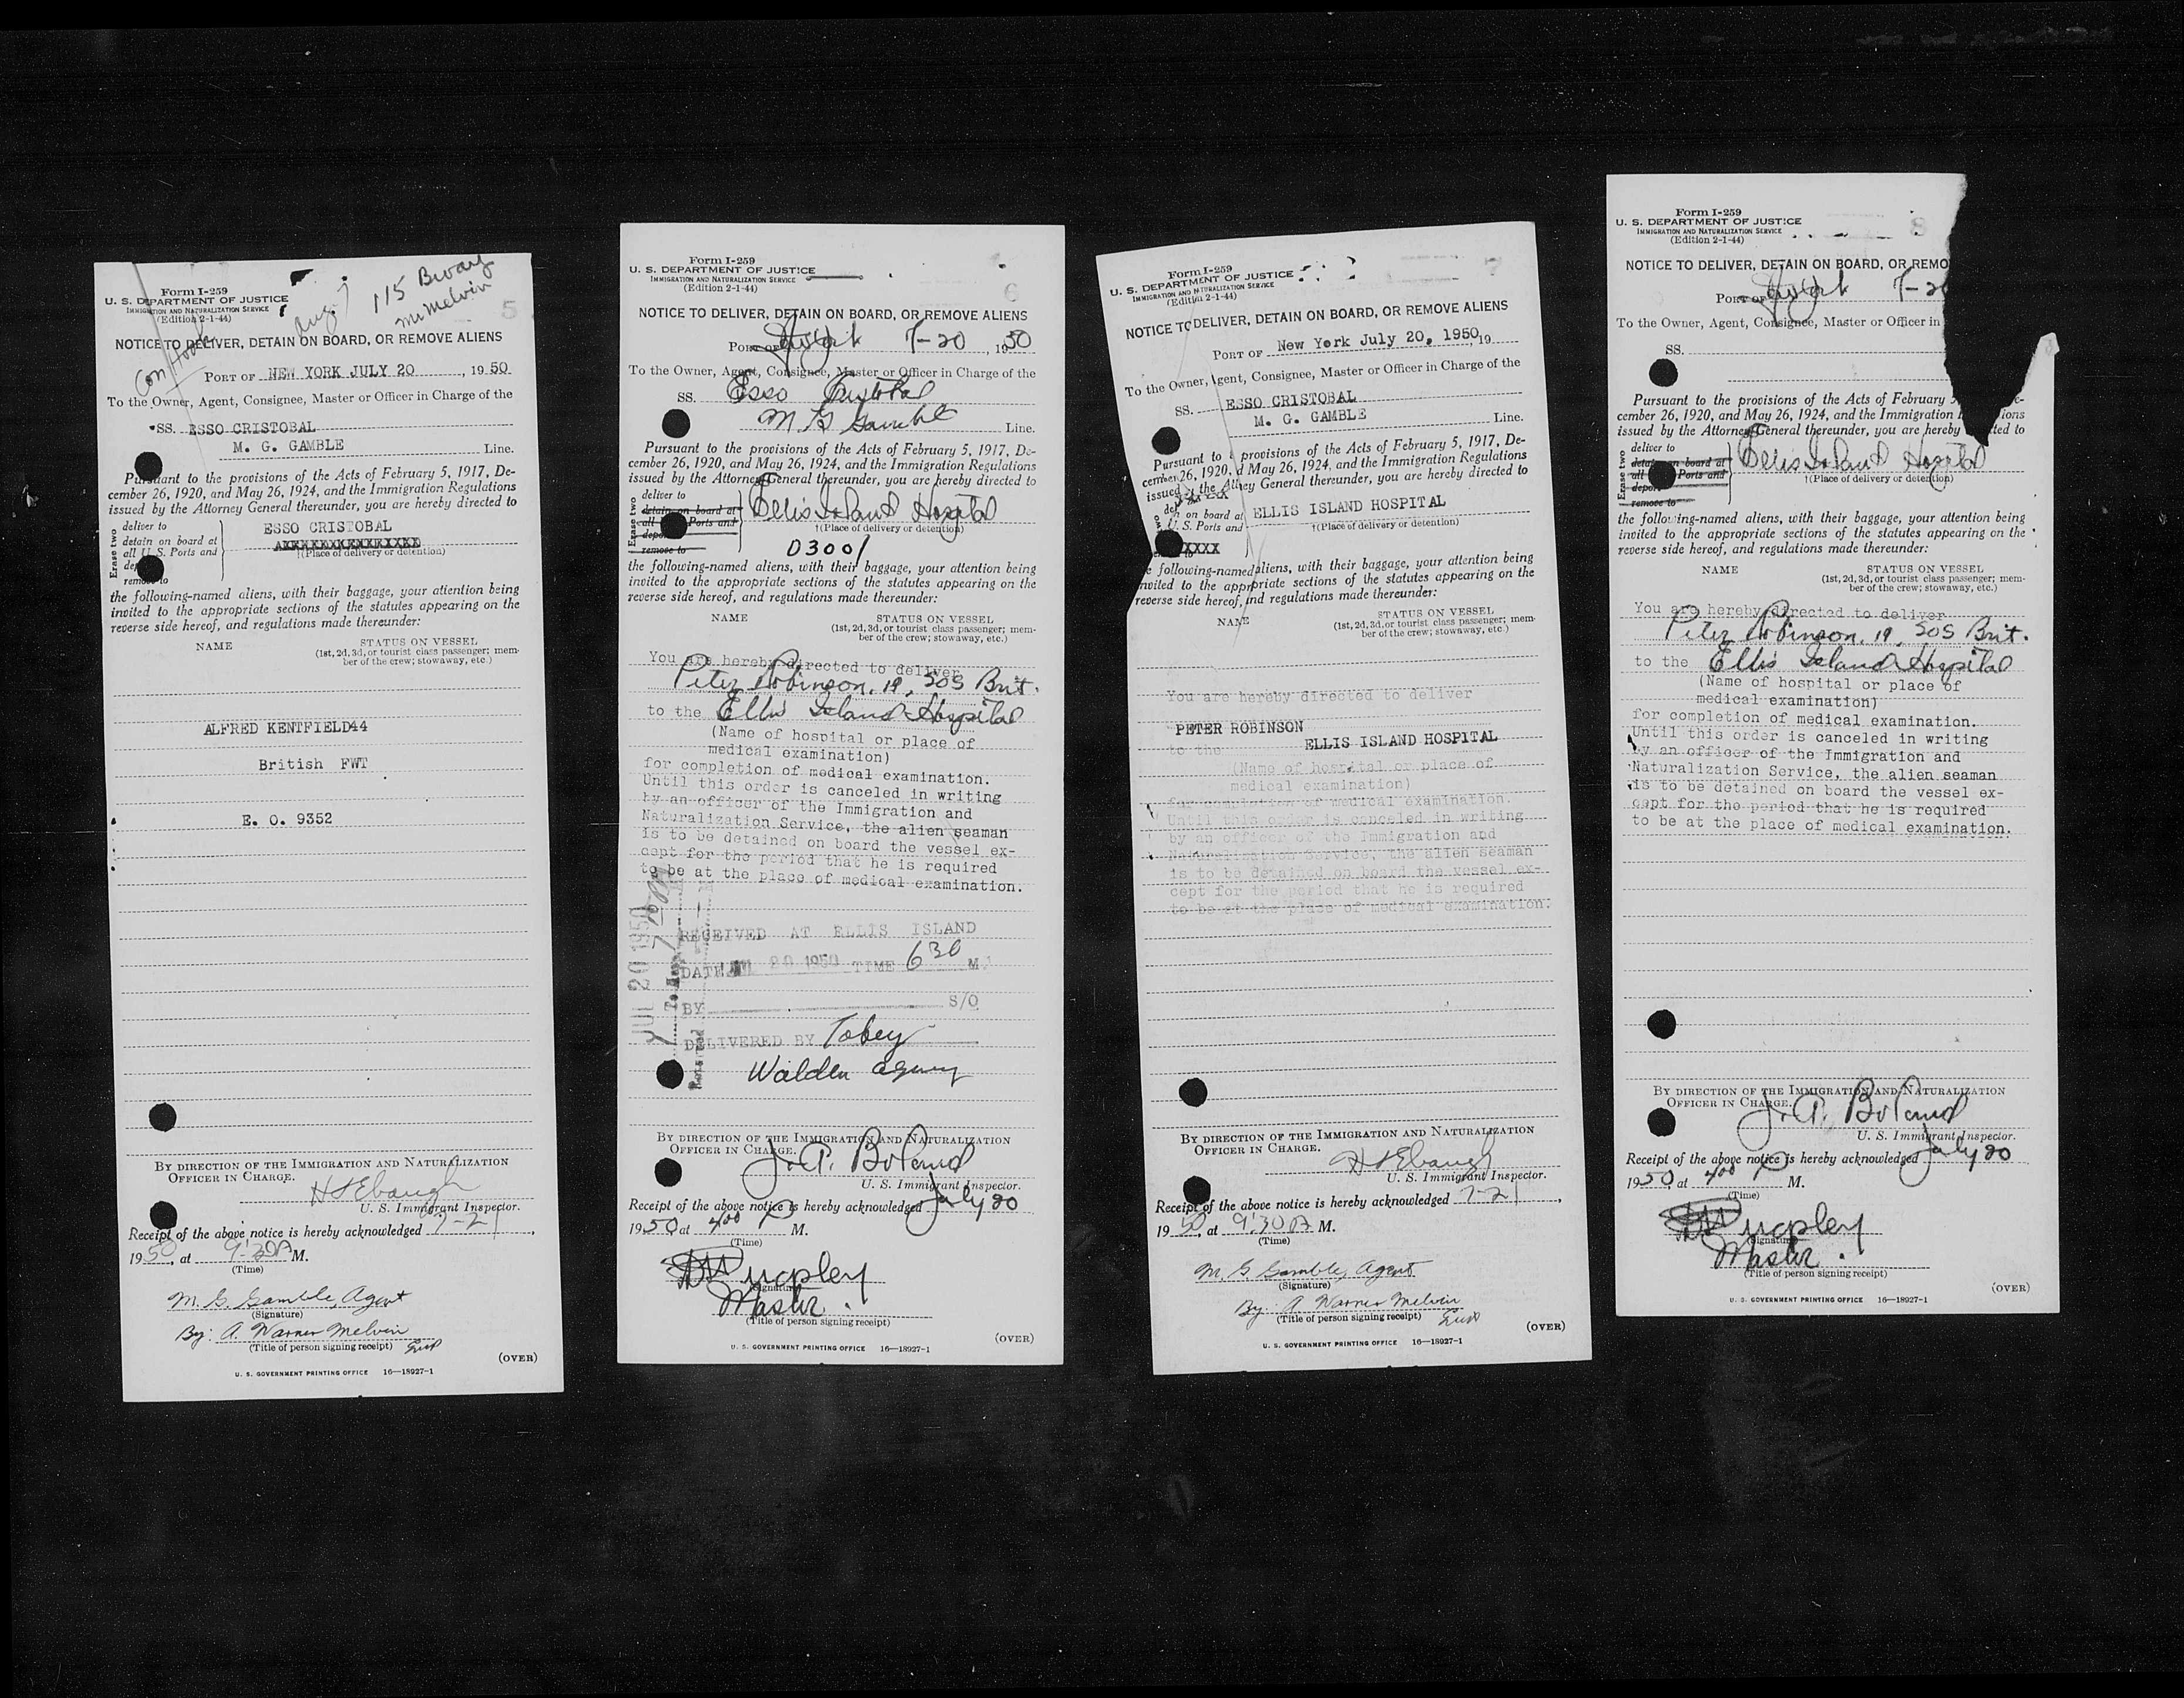 115 Bway
Mr Melvin
5
Form I-259
U. S. DEPARTMENT OF JUSTICE
IMMIGRATION AND NATURALIZATION SERVICE
(Edition 2-1-44)
NOTICE TO DELIVER, DETAIN ON BOARD, OR REMOVE ALIENS
PORT OF NEW YORK JULY 20, 1950
To the Owner, Agent, Consignee, Master or Officer in Charge of the
SS. ESSO CRISTOBAL
M. G. GAMBLE Line.
Pursuant to the provisions of the Acts of February 5, 1917, De-
cember 26, 1920, and May 26, 1924, and the Immigration Regulations
issued by the Attorney General thereunder, you are hereby directed to
Erase two
deliver to
detain on board at
all U.S. Ports and
remove to
ESSO CRISTOBAL
†(Place of delivery or detention)
the following-named aliens, with their baggage, your attention being
invited to the appropriate sections of the statutes appearing on the
reverse side hereof, and regulations made thereunder:
NAME STATUS ON VESSEL
(1st, 2d, 3d, or tourist class passenger; mem-
ber of the crew; stowaway, etc.)
ALFRED KENTFIELD44
British FWT
E. O. 9352
BY DIRECTION OF THE IMMIGRATION AND NATURALIZATION
OFFICER IN CHARGE.
H S Ebaugh
U. S. Immigrant Inspector.
Receipt of the above notice is hereby acknowledged 7-21,
1950, at 9:30 A M.
(Time)
M. G. Gamble, Agent
(Signature)
By: A Warner Melvin
(Title of person signing receipt)
(OVER)
U. S. GOVERNMENT PRINTING OFFICE 16—18927-1
Form I-259
U. S. DEPARTMENT OF JUSTICE
IMMIGRATION AND NATURALIZATION SERVICE
(Edition 2-1-44)
6
NOTICE TO DELIVER, DETAIN ON BOARD, OR REMOVE ALIENS
PORT OF N York 7-20, 1950
To the Owner, Agent, Consignee, Master or Officer in Charge of the
SS. Esso Cristobal
M G Gamble Line.
Pursuant to the provisions of the Acts of February 5, 1917, De-
cember 26, 1920, and May 26, 1924, and the Immigration Regulations
issued by the Attorney General thereunder, you are hereby directed to
Erase two
deliver to
detain on board at
all Ports and
remove to
Ellis Island Hospital
†(Place of delivery or detention)
D3001
the following-named aliens, with their baggage, your attention being
invited to the appropriate sections of the statutes appearing on the
reverse side hereof, and regulations made thereunder:
NAME STATUS ON VESSEL
(1st, 2d, 3d, or tourist class passenger; mem-
ber of the crew; stowaway, etc.)
You are hereby directed to deliver
Peter Robinson, 19, SOS Brit.
to the Ellis Island Hospital
(Name of hospital or place of
medical examination)
for completion of medical examination.
Until this order is canceled in writing
by an officer of the Immigration and
Naturalization Service, the alien seaman
is to be detained on board the vessel ex-
cept for the period that he is required
to be at the place of medical examination.
JUL 20 1950
RECEIVED AT ELLIS ISLAND
DATE JUL 20 1950 TIME 6 30 M
BY S/O
DELIVERED BY Tobey
Walden agency
BY DIRECTION OF THE IMMIGRATION AND NATURALIZATION
OFFICER IN CHARGE.
J. A. Boland
U. S. Immigrant Inspector.
Receipt of the above notice is hereby acknowledged July 20
1950, at 4 00 P M.
(Time)
(Signature)
Master.
(Title of person signing receipt)
(OVER)
U. S. GOVERNMENT PRINTING OFFICE 16—18927-1
Form I-259
U. S. DEPARTMENT OF JUSTICE
IMMIGRATION AND NATURALIZATION SERVICE
(Edition 2-1-44)
7
NOTICE TO DELIVER, DETAIN ON BOARD, OR REMOVE ALIENS
PORT OF New York July 20, 1950, 19
To the Owner, Agent, Consignee, Master or Officer in Charge of the
SS. ESSO CRISTOBAL
M. G. GAMBLE Line.
Pursuant to provisions of the Acts of February 5, 1917, De-
cember 26, 1920, d May 26, 1924, and the Immigration Regulations
issued the Att ey General thereunder, you are hereby directed to
n on board at
U.S. Ports and
ELLIS ISLAND HOSPITAL
†(Place of delivery or detention)
XXXX
following-named aliens, with their baggage, your attention being
invited to the appropriate sections of the statutes appearing on the
reverse side hereof, and regulations made thereunder:
NAME STATUS ON VESSEL
(1st, 2d, 3d, or tourist class passenger; mem-
ber of the crew; stowaway, etc.)
You are hereby directed to deliver
PETER ROBINSON
to the ELLIS ISLAND HOSPITAL
(Name of hospital or place of
medical examination)
for completion of medical examination.
Until this order is canceled in writing
by an officer of the Immigration and
Naturalization Service, the alien seaman
is to be detained on board the vessel ex-
cept for the period that he is required
to be at the place of medical examination.
BY DIRECTION OF THE IMMIGRATION AND NATURALIZATION
OFFICER IN CHARGE.
H S Ebaugh
U. S. Immigrant Inspector.
Receipt of the above notice is hereby acknowledged 7-21,
1950, at 9:30 A M.
(Time)
M. G. Gamble, Agent
(Signature)
By: A Warner Melvin
(Title of person signing receipt)
(OVER)
U. S. GOVERNMENT PRINTING OFFICE 16—18927-1
Form I-259
U. S. DEPARTMENT OF JUSTICE
IMMIGRATION AND NATURALIZATION SERVICE
(Edition 2-1-44)
8
NOTICE TO DELIVER, DETAIN ON BOARD, OR REMO
PORT OF N York 7-20
To the Owner, Agent, Consignee, Master or Officer in
SS.
Pursuant to the provisions of the Acts of February 5,
cember 26, 1920, and May 26, 1924, and the Immigration
issued by the Attorney General thereunder, you are hereby ted to
Erase two
deliver to
detain on board at
all Ports and
remove to
Ellis Island Hospital
†(Place of delivery or detention)
the following-named aliens, with their baggage, your attention being
invited to the appropriate sections of the statutes appearing on the
reverse side hereof, and regulations made thereunder:
NAME STATUS ON VESSEL
(1st, 2d, 3d, or tourist class passenger; mem-
ber of the crew; stowaway, etc.)
You are hereby directed to deliver
Peter Robinson, 19, SOS Brit.
to the Ellis Island Hospital
(Name of hospital or place of
medical examination)
for completion of medical examination.
Until this order is canceled in writing
by an officer of the Immigration and
Naturalization Service, the alien seaman
is to be detained on board the vessel ex-
cept for the period that he is required
to be at the place of medical examination.
BY DIRECTION OF THE IMMIGRATION AND NATURALIZATION
OFFICER IN CHARGE.
J. A. Boland
U. S. Immigrant Inspector.
Receipt of the above notice is hereby acknowledged July 20
1950, at 4 00 P M.
(Time)
(Signature)
Master.
(Title of person signing receipt)
(OVER)
U. S. GOVERNMENT PRINTING OFFICE 16—18927-1